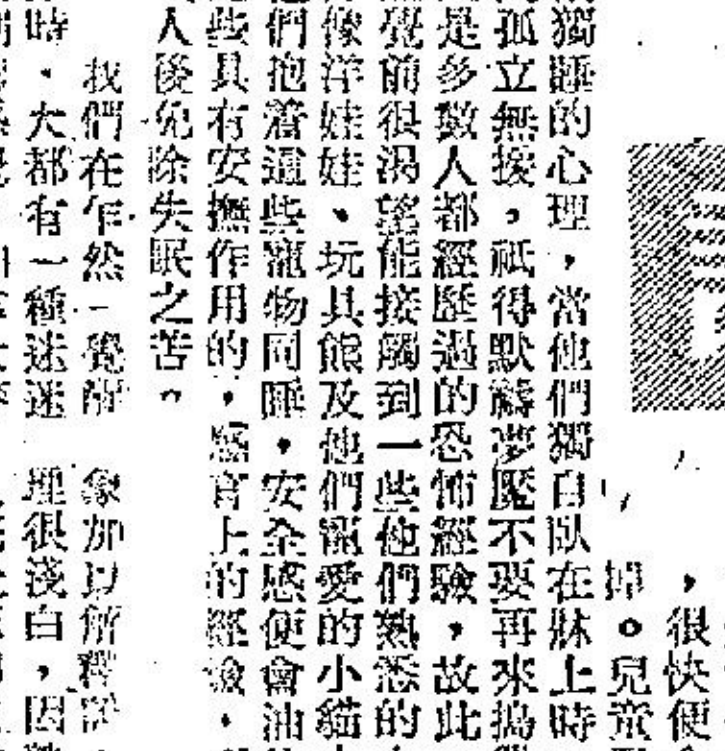 ，很快便
掉。兒童
獨睡的心理，當他們獨自臥在牀上時
孤立無援，祇得默禱夢魘不要再來搗
是多數人都經歷過的恐怖經驗，故此
覺前很渴望能接觸到一些他們熟悉的
像洋娃娃、玩具熊及他們寵愛的小貓
們抱着這些寵物同睡，安全感便會油
些具有安撫作用的，感官上的經驗，
人後免除失眠之苦。
我們在乍然一覺醒
象加以解釋
時，大都有一種迷迷
理很淺白，因